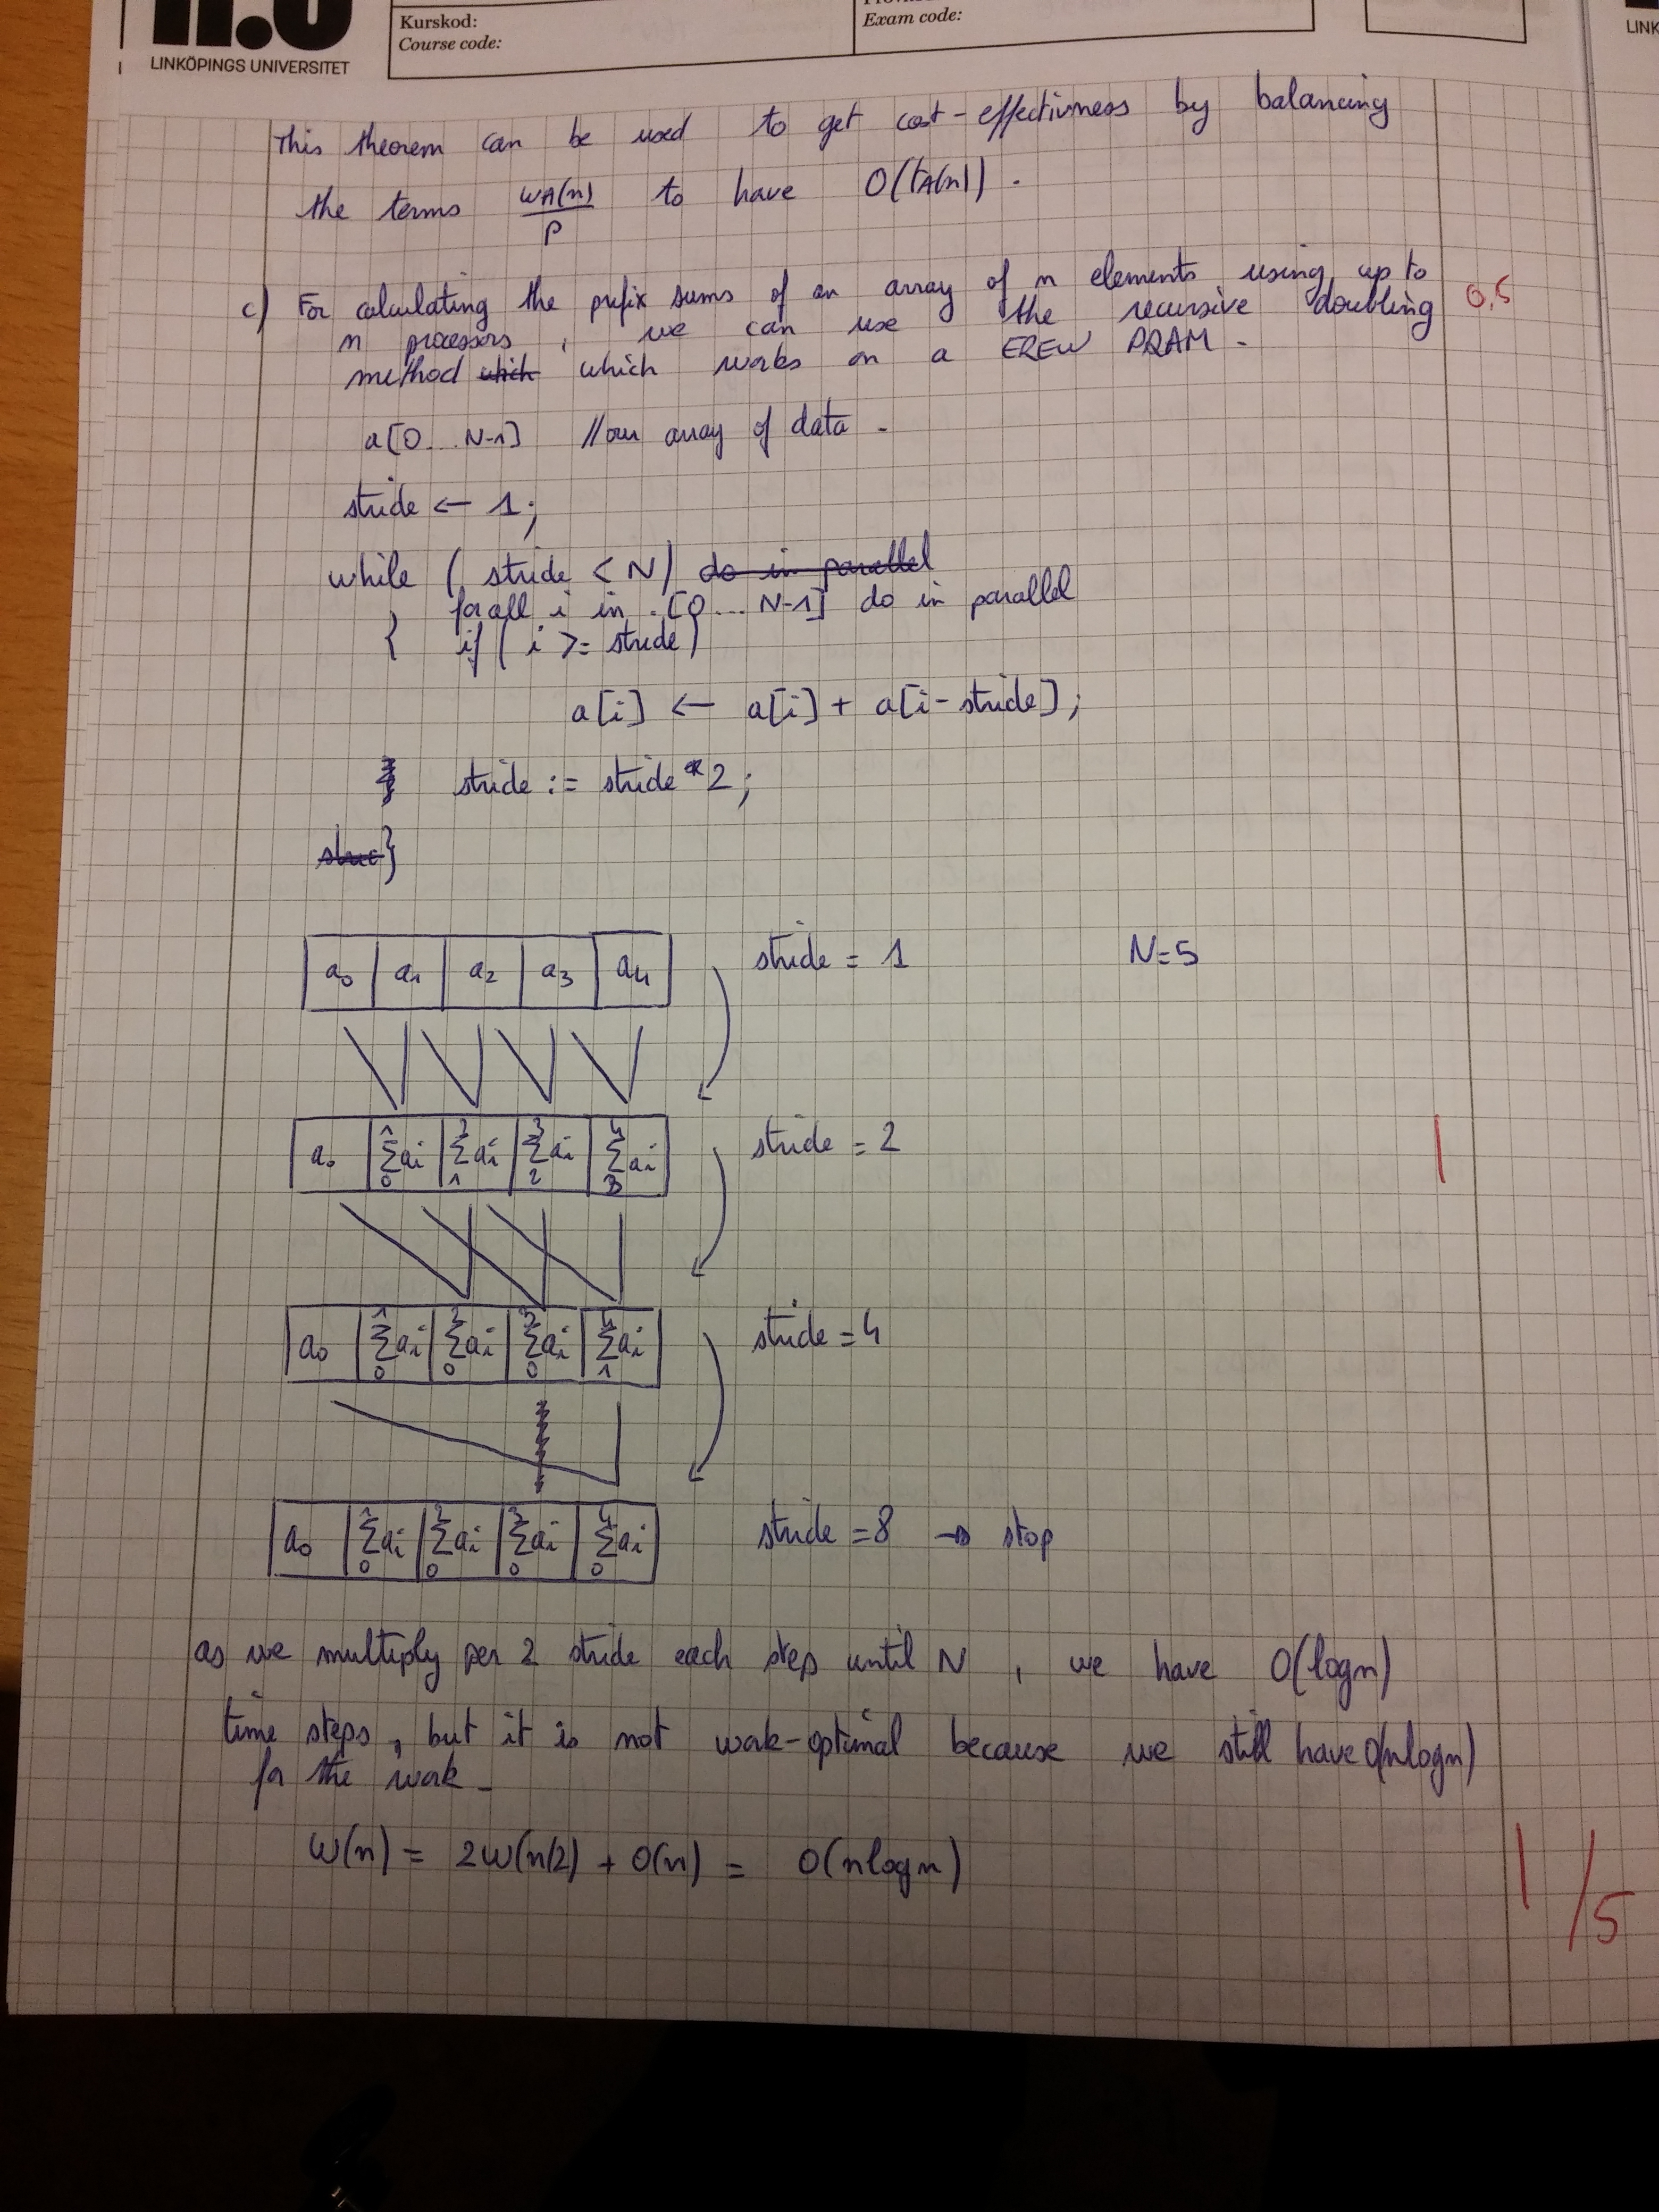 Kurskod:
Course code:
Exam code:
LINKÖPINGS UNIVERSITET
LINK
This theorem can be used to get cost-effectivness by balancing
the terms wA(n)/p to have O(tA(n)).
c) For calculating the prefix sums of an array of n elements using up to
n processors, we can use the recursive doubling
method which which works on a EREW PRAM.
0,5
a[0...N-1] //our array of data.
stride ← 1;
while ( stride < N) do in parallel
forall i in [0...N-1] do in parallel
{ if ( i >= stride)
a[i] ← a[i] + a[i-stride];
stride := stride * 2;
}
a0 a1 a2 a3 a4 stride = 1 N=5
a0 1Σ0 ai 2Σ1 ai 3Σ2 ai 4Σ3 ai stride = 2
1
a0 1Σ0 ai 2Σ0 ai 3Σ0 ai 4Σ1 ai stride = 4
a0 1Σ0 ai 2Σ0 ai 3Σ0 ai 4Σ0 ai stride = 8 → stop
as we multiply per 2 stride each step until N, we have O(logn)
time steps, but it is not work-optimal because we still have O(nlogn)
for the work.
W(n) = 2W(n/2) + O(n) = O(nlogn)
1/5